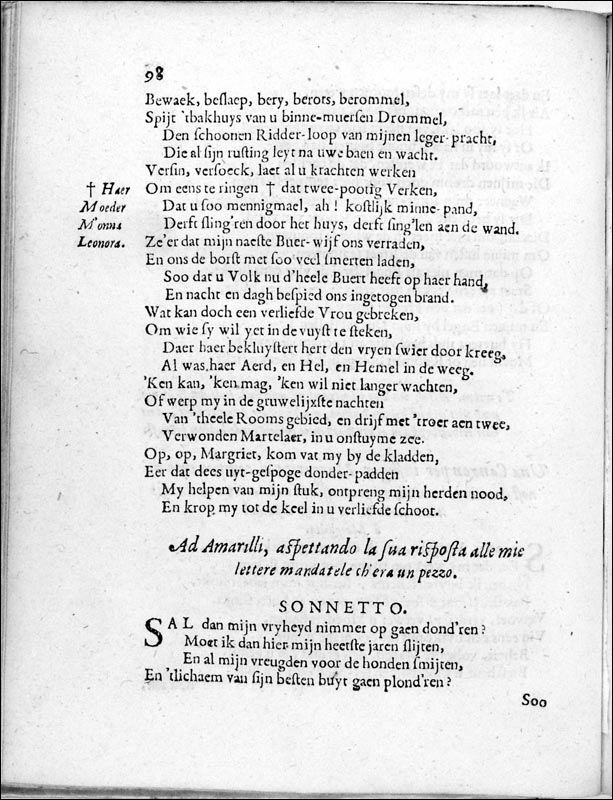 98
Bewaek, beslaep, bery, berors, berommel,
Spijt 'tbakhuys van u binne-muersen Drommel,
Den schoonen Ridder-loop van mijnen leger-pracht,
Die al sijn rusting leyt na uwe baen en wacht.
Versin, versoeck, laet al u krachten werken
† Haer
Moeder
M'onna
Leonora.
Om eens te ringen † dat twee-pootig Verken,
Dat u soo mennigmael, ah! kostlijk minne-pand,
Derft sling'ren door het huys, derft sing'len aen de wand.
Ze'er dat mijn naeste Buer-wijf ons verraden,
En ons de borst met soo veel smerten laden,
Soo dat u Volk nu d'heele Buert heeft op haer hand,
En nacht en dagh bespied ons ingetogen brand.
Wat kan doch een verliefde Vrou gebreken,
Om wie sy wil yet in de vuyst te steken,
Daer haer bekluystert hert den vryen swier door kreeg,
Al was haer Aerd, en Hel, en Hemel in de weeg.
'Ken kan, 'ken mag, 'ken wil niet langer wachten,
Of werp my in de gruwelijxste nachten
Van 'theele Rooms gebied, en drijf met 'troer aen twee,
Verwonden Martelaer, in u onstuyme zee.
Op, op, Margriet, kom vat my by de kladden,
Eer dat dees uyt-gespoge donder-padden
My helpen van mijn stuk, ontpreng mijn herden nood,
En krop my tot de keel in u verliefde schoot.
Ad Amarilli, aspettando la sua risposta alle mie
lettere mandatele ch'era un pezzo.
SONNETTO.
SAL dan mijn vryheyd nimmer op gaen dond'ren?
Moet ik dan hier mijn heetste jaren slijten,
En al mijn vreugden voor de honden smijten,
En 'tlichaem van sijn besten buyt gaen plond'ren?
Soo